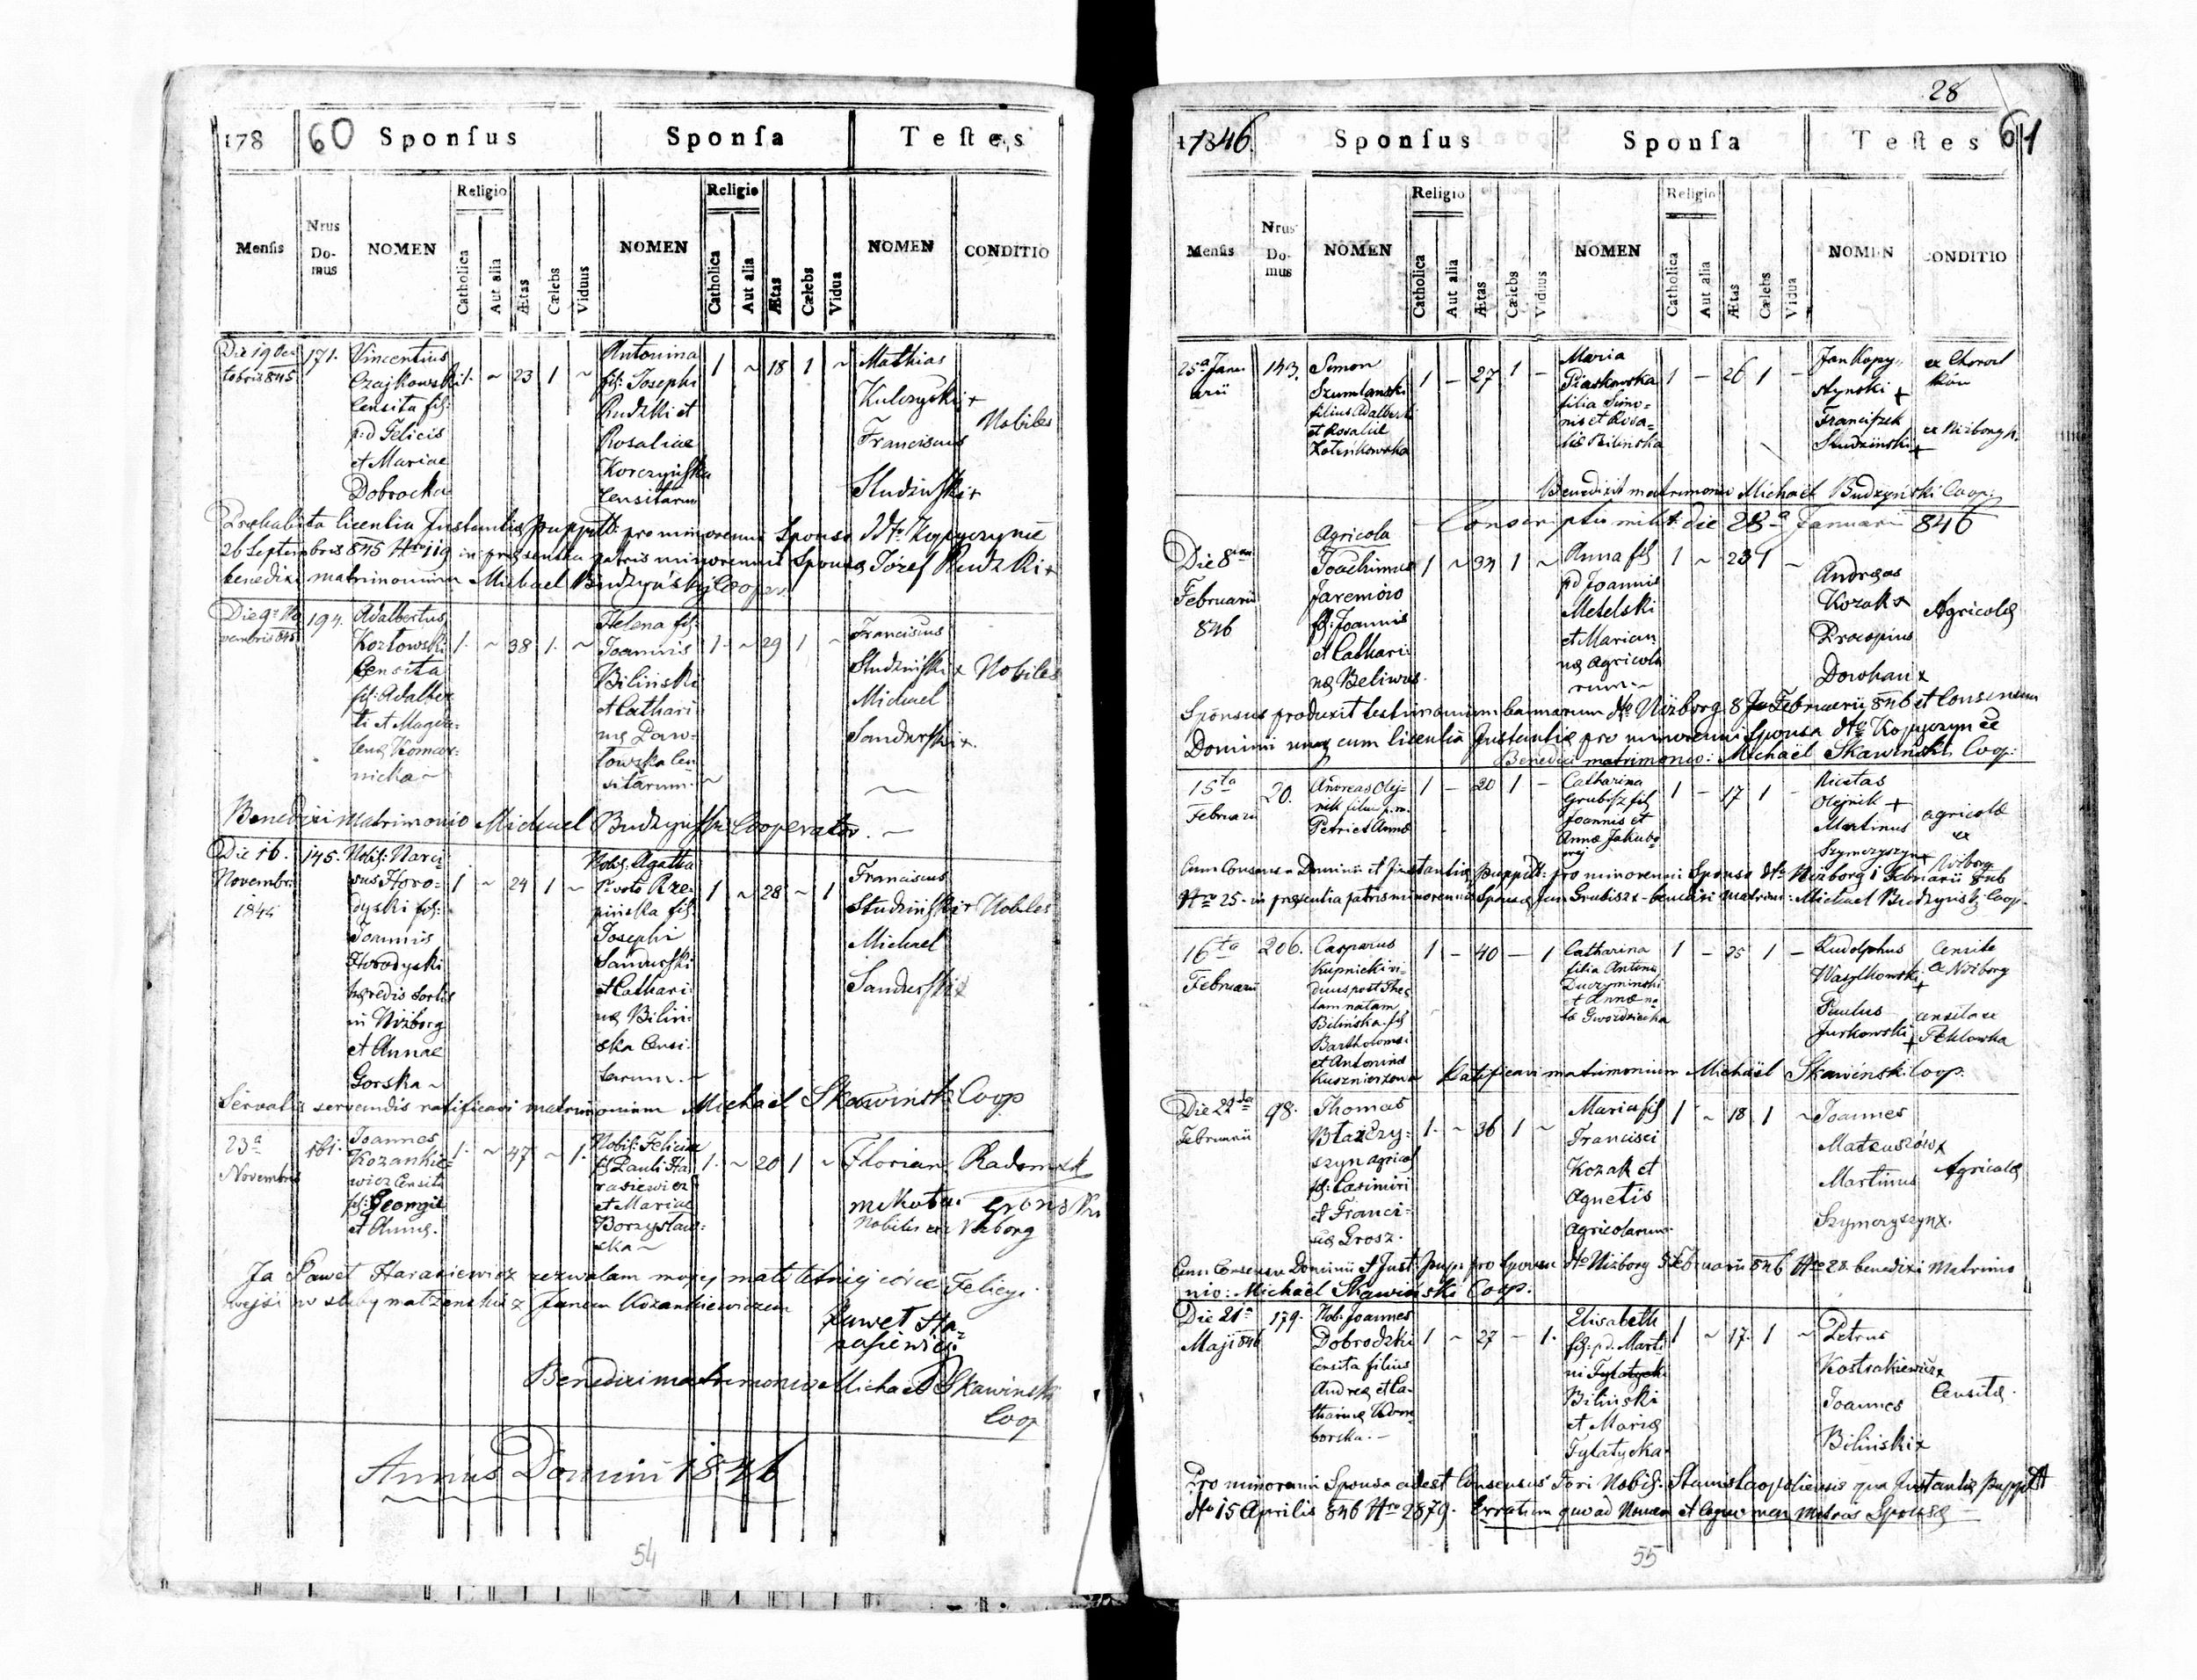 178 60 Sponſus Sponſa Teſtes
Menſis Nrus Domus NOMEN Religio Catholica Aut alia Ætas Cælebs Viduus NOMEN Religio Catholica Aut alia Ætas Cælebs Vidua NOMEN CONDITIO
Die 19 Oc
tobris 845
171.
Vincentius
Czajkowski
Censita fil:
p:d Felicis
et Mariae
Dobrocka
1. ~ 23 1 ~
Antonina
fil: Josephi
Rudzki et
Rosaliae
Korczyńska
Censitarum
1 ~ 18 1 ~
Mathias
Kulczycki +
Franciscus
Studzinski +
Nobiles
Prohabita licentia Instantiae puppill: pro minorenni Sponsa
26 Septembris 845 Nro 119 in praesentia patris minorennis Sponsae Józef Rudzki +
benedixi matrimonium Michael Budzyński Coop.
Die 9a No
vembris 845
194.
Adalbertus
Kozłowski
Censita
fil: Adalber
ti et Magda-
lenae Komar-
nicka ~
1. ~ 38 1. ~
Helena fil:
Joannis
Biliński
et Cathari
nae Zaw-
towska Cen
sitarum ~
1. ~ 29 1 ~
Franciscus
Studziński x
Michael
Sandurski x.
Nobiles
Benedixi Matrimonio Michael Budzyński Cooperator. ~
Die 16.
Novembr.
1845
145.
Nobil: Narci
sus Horo-
dyski fil:
Joannis
Horodyski
haeredis sortis
in Niżborg
et Annae
Gorska ~
1 ~ 24 1 ~
Nobil. Agatha
1o voto Rze-
pińska fil:
Josephi
Sandurski
et Cathari
nae Biliń-
ska Censi-
tarum. ~
1 ~ 28 ~ 1
Franciscus
Studziński +
Michael
Sandurski x
Nobiles
Servatis servandis ratificavi matrimonium Michael Skawiński Coop
23a
Novembris
161.
Joannes
Kozankie-
wicz Censita
fil: Georgii
et Annae.
1. ~ 47 ~ 1.
Nobil: Felicia
fil: Pauli Ha
rasiewicz
et Mariae
Borzysław-
ska ~
1. ~ 20 1 ~
Florian Radomsk
Nobiles ex Niżborg
Ja Paweł Harasiewicz zezwalam mojej małoletniej córce Felicyi
wejść w śluby małżeńskie z Janem Kozankiewiczem
Paweł Ha-
rasiewicz
Benedixi matrimonio Michael Skawiński
Coop
Annus Domini 1846
54
28
1846. Sponſus Sponſa Teſtes 61
Menſis Nrus Domus NOMEN Religio Catholica Aut alia Ætas Cælebs Viduus NOMEN Religio Catholica Aut alia Ætas Cælebs Vidua NOMEN CONDITIO
25a Janu
arii
143.
Simon
Szumlanski
filius Adalberti
et Rosaliæ
1 – 27 1 –
Maria
Piaskowska
filia Simo-
nis et Rosa-
liæ Bilińska
1 – 26 1 –
Jan Kopy-
styński +
Franciszek
Studziński +
ex Chorost
ków
ex Niżborg
Benedixit matrimonio Michaël Budzyński Coop:
Conscriptus milit: die 28a Januari 846
Die 8va
Februarii
846
Agricola
Joachimus
Jaremów
fil: Joannis
et Cathari-
nae Beliwus
1 ~ 34 1 ~
Anna fil
pd Joannis
Metelski
et Marian
nae Agricola
rum.~
1 ~ 23 1 ~
Andreas
Kozak x
Procopius
Dowhan x
Agricolae
Sponsus produxit testimonium bannorum dto Niżborg 8 Februarii 846 et Consensum
Dominii una cum licentia Instantiae pro minorenni Sponsa dto Kopyczyńce
Benedixi matrimonio: Michaël Skawiński Coop:
15ta
Februarii
20.
Andreas Olej-
nik filius p.m.
Petri et Annæ
1 – 20 1 –
Catharina
Grubisz fil
Joannis et
Annæ Jakubo
wej
1 – 17 1 –
Nicetas
Olejnik +
Martinus
Szymczyszyn +
agricolæ
ex
Niżborg
Cum Consensu Dominii et Instantiae puppill: pro minorenni Sponsa dto Niżborg 1 Februarii 846
Nro 25 in praesentia patris minorennis Sponsae Jan Grubisz x benedixi matrim: Michael Budzyński Coop.
16ta
Februarii
206.
Casparus
Kupnicki vi-
duus post The
lam natam
Bilińska fil
Bartholomei
et Antoninæ
Kusznierzowa
1 – 40 – 1
Catharina
filia Antonii
Duczyminski
et Annæ na
tæ Gwozdziecka
1 – 25 1 –
Rudolphus
Wasylkowski +
Paulus
Jurkowski +
Censitæ
ex Niżborg
censita ex
Teklowka
Ratificavi matrimonium Michäel Skawiński Coop.
Die 22da
Februarii
98.
Thomas
Błażczy-
szyn agricol
fil: Casimiri
et Franci-
scae Grosz.
1. ~ 36 1 ~
Maria fil
Francisci
Kozak et
Agnetis
Agricolarum
1 ~ 18 1 ~
Joannes
Mateuszów x
Martinus
Szymczyszyn x.
Agricolae
Cum Consensu Dominii et Inst: pupp: pro Sponsa dto Niżborg 5 Februarii 846 Nro 28 benedixi Matrimo
nio: Michaël Skawiński Coop:
Die 21a
Maji 846
179.
Nob: Joannes
Dobrodzki
Censita filius
Andreae et Ca-
tharinae Dom-
borska.–
1 ~ 27 – 1.
Elisabeth
fil: p.d. Marti
ni Tylatycki
Biliński
et Mariae
Tylatycka
1 ~ 17. 1 ~
Petrus
Kostrakiewicz x
Joannes
Biliński x
Censitae.
Pro minorenni Sponsa adest Consensus Fori Nobil. Stanislaopoliensis qua Instantiae puppill
dto 15 Aprilis 846 Nro 2879. Erratum quoad Nomen et Cognomen Matris Sponsae
55